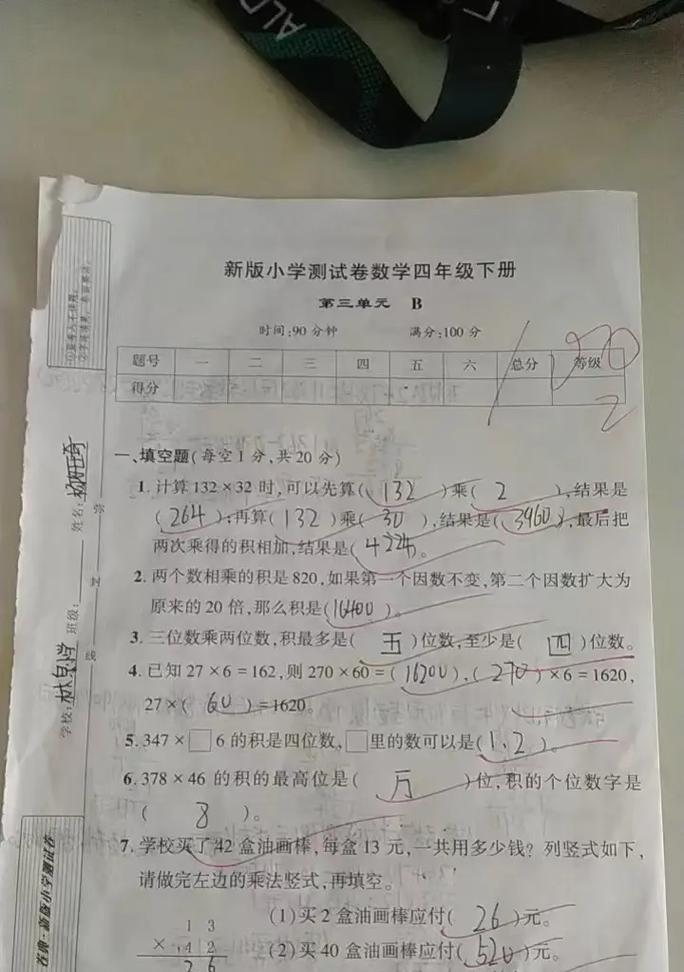 新版小学测试卷数学四年级下册
第三单元 B
时间:90分钟 满分:100分
题号 一 二 三 四 五 六 总分 等级
得分
一、填空题(每空1分,共20分)
1. 计算132×32时,可以先算( 132 )乘( 2 ),结果是
( 264 );再算( 132 )乘( 30 ),结果是( 3960 ),最后把
两次乘得的积相加,结果是( 4224 )。
2. 两个数相乘的积是820,如果第一个因数不变,第二个因数扩大为
原来的20倍,那么积是( 16400 )。
3. 三位数乘两位数,积最多是( 五 )位数,至少是( 四 )位数。
4. 已知27×6=162,则270×60=( 16200 ),( 270 )×6=1620,
27×( 60 )=1620。
5. 347×□6的积是四位数,□里的数可以是( 1、2 )。
6. 378×46的积的最高位是( 万 )位,积的个位数字是
( 8 )。
7. 学校买了42盒油画棒,每盒13元,一共用多少钱?列竖式如下,
请做完左边的乘法竖式,再填空。
1 3
× 4 2
2 6
(1)买2盒油画棒应付( 26 )元。
(2)买40盒油画棒应付( 520 )元。
学校:
班级:
姓名:
线